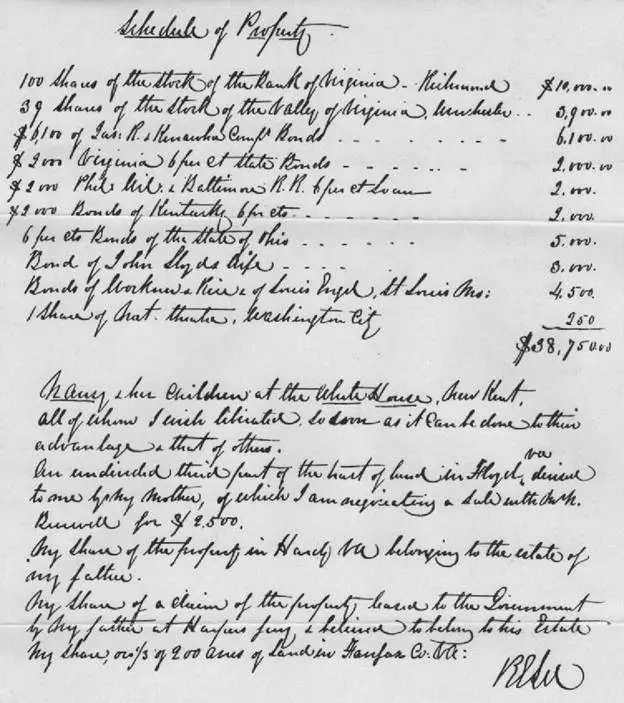 Schedule of Property.
100 Shares of the stock of the Bank of Virginia - Richmond $10,000.00
39 Shares of the stock of the Valley of Virginia, Winchester .. 3,900.00
$6,100 of Jas: R. & Kenawha Comp' Bonds - - - - - - 6,100.00
$2000 Virginia 6 per ct State Bonds - - - - - - 2,000.00
$2000 Phil: Wil: & Baltimore R. R. 6 per ct Loan 2,000.
$2000 Bonds of Kentucky 6 per cts - - - - - 2,000.
6 per cts Bonds of the State of Ohio - - - - - 5,000.
Bond of John Lloyds Wife - - - - 3,000.
Bonds of Workman & Rice & of Louis Engel, St Louis Mo: 4,500.
1 Share of Nat. theatre, Washington City 250
$38,750.00
Nancy & her Children at the White House, New Kent,
all of whom I wish liberated, so soon as it can be done to their
advantage & that of others.
An undivided third part of the tract of land in Floyd, va devised
to me by my Mother, of which I am negociating a sale with Mr N.
Burwell for $2,500.
My share of the property in Hardy Va belonging to the estate of
my father.
My share of a claim of the property leased to the Government
by my father at Harpers ferry & believed to belong to his Estate
My share, or 1/3 of 200 acres of Land in Fairfax Co: Va:
R E Lee